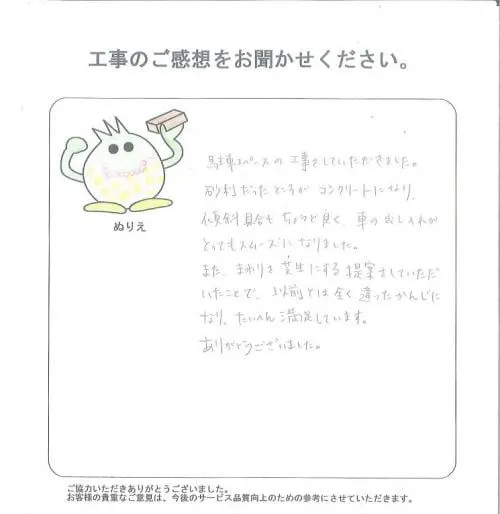 工事のご感想をお聞かせください。
ぬりえ
駐車スペースの工事をしていただきました。
砂利だったところが コンクリートになり、
傾斜具合も ちょうど良く、車の出し入れが
とってもスムーズになりました。
また、まわりを芝生にする提案をしていただ
いたことで、以前とは全く違ったかんじに
なり、たいへん満足しています。
ありがとうございました。
ご協力いただきありがとうございました。
お客様の貴重なご意見は、今後のサービス品質向上のための参考にさせていただきます。